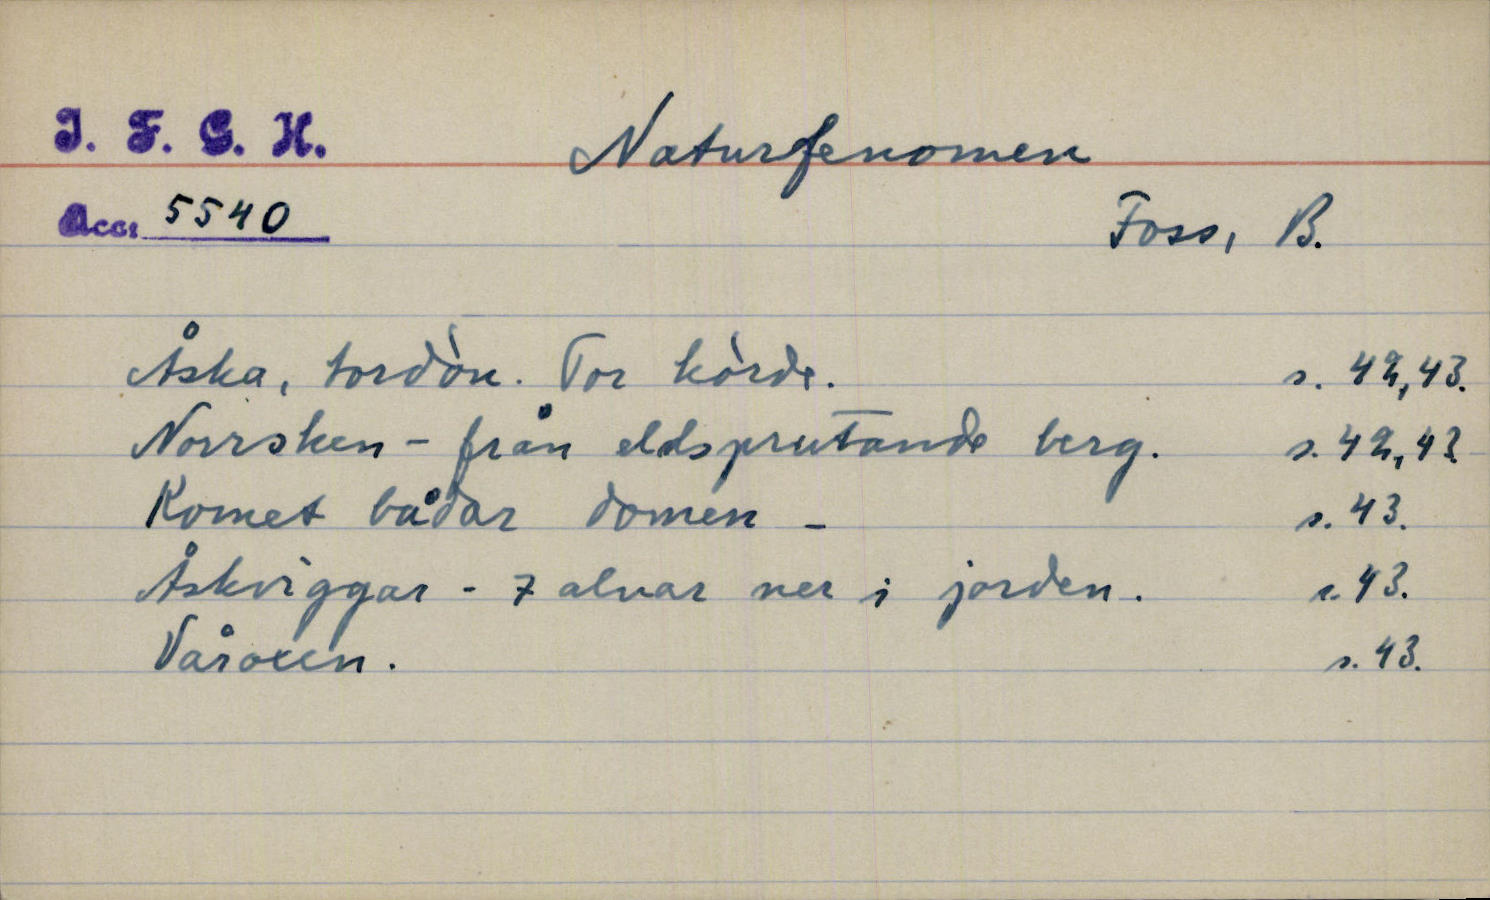 I. F. G. H.
Naturfenomen
Acc. 5540
Foss, B.
Åska, tordön. Tor körde. s. 42,43.
Norrsken - från eldsprutande berg. s. 42,43.
Komet bådar domen - s. 43.
Åskviggar - 7 alnar ner i jorden. s. 43.
Våroxen. s. 43.